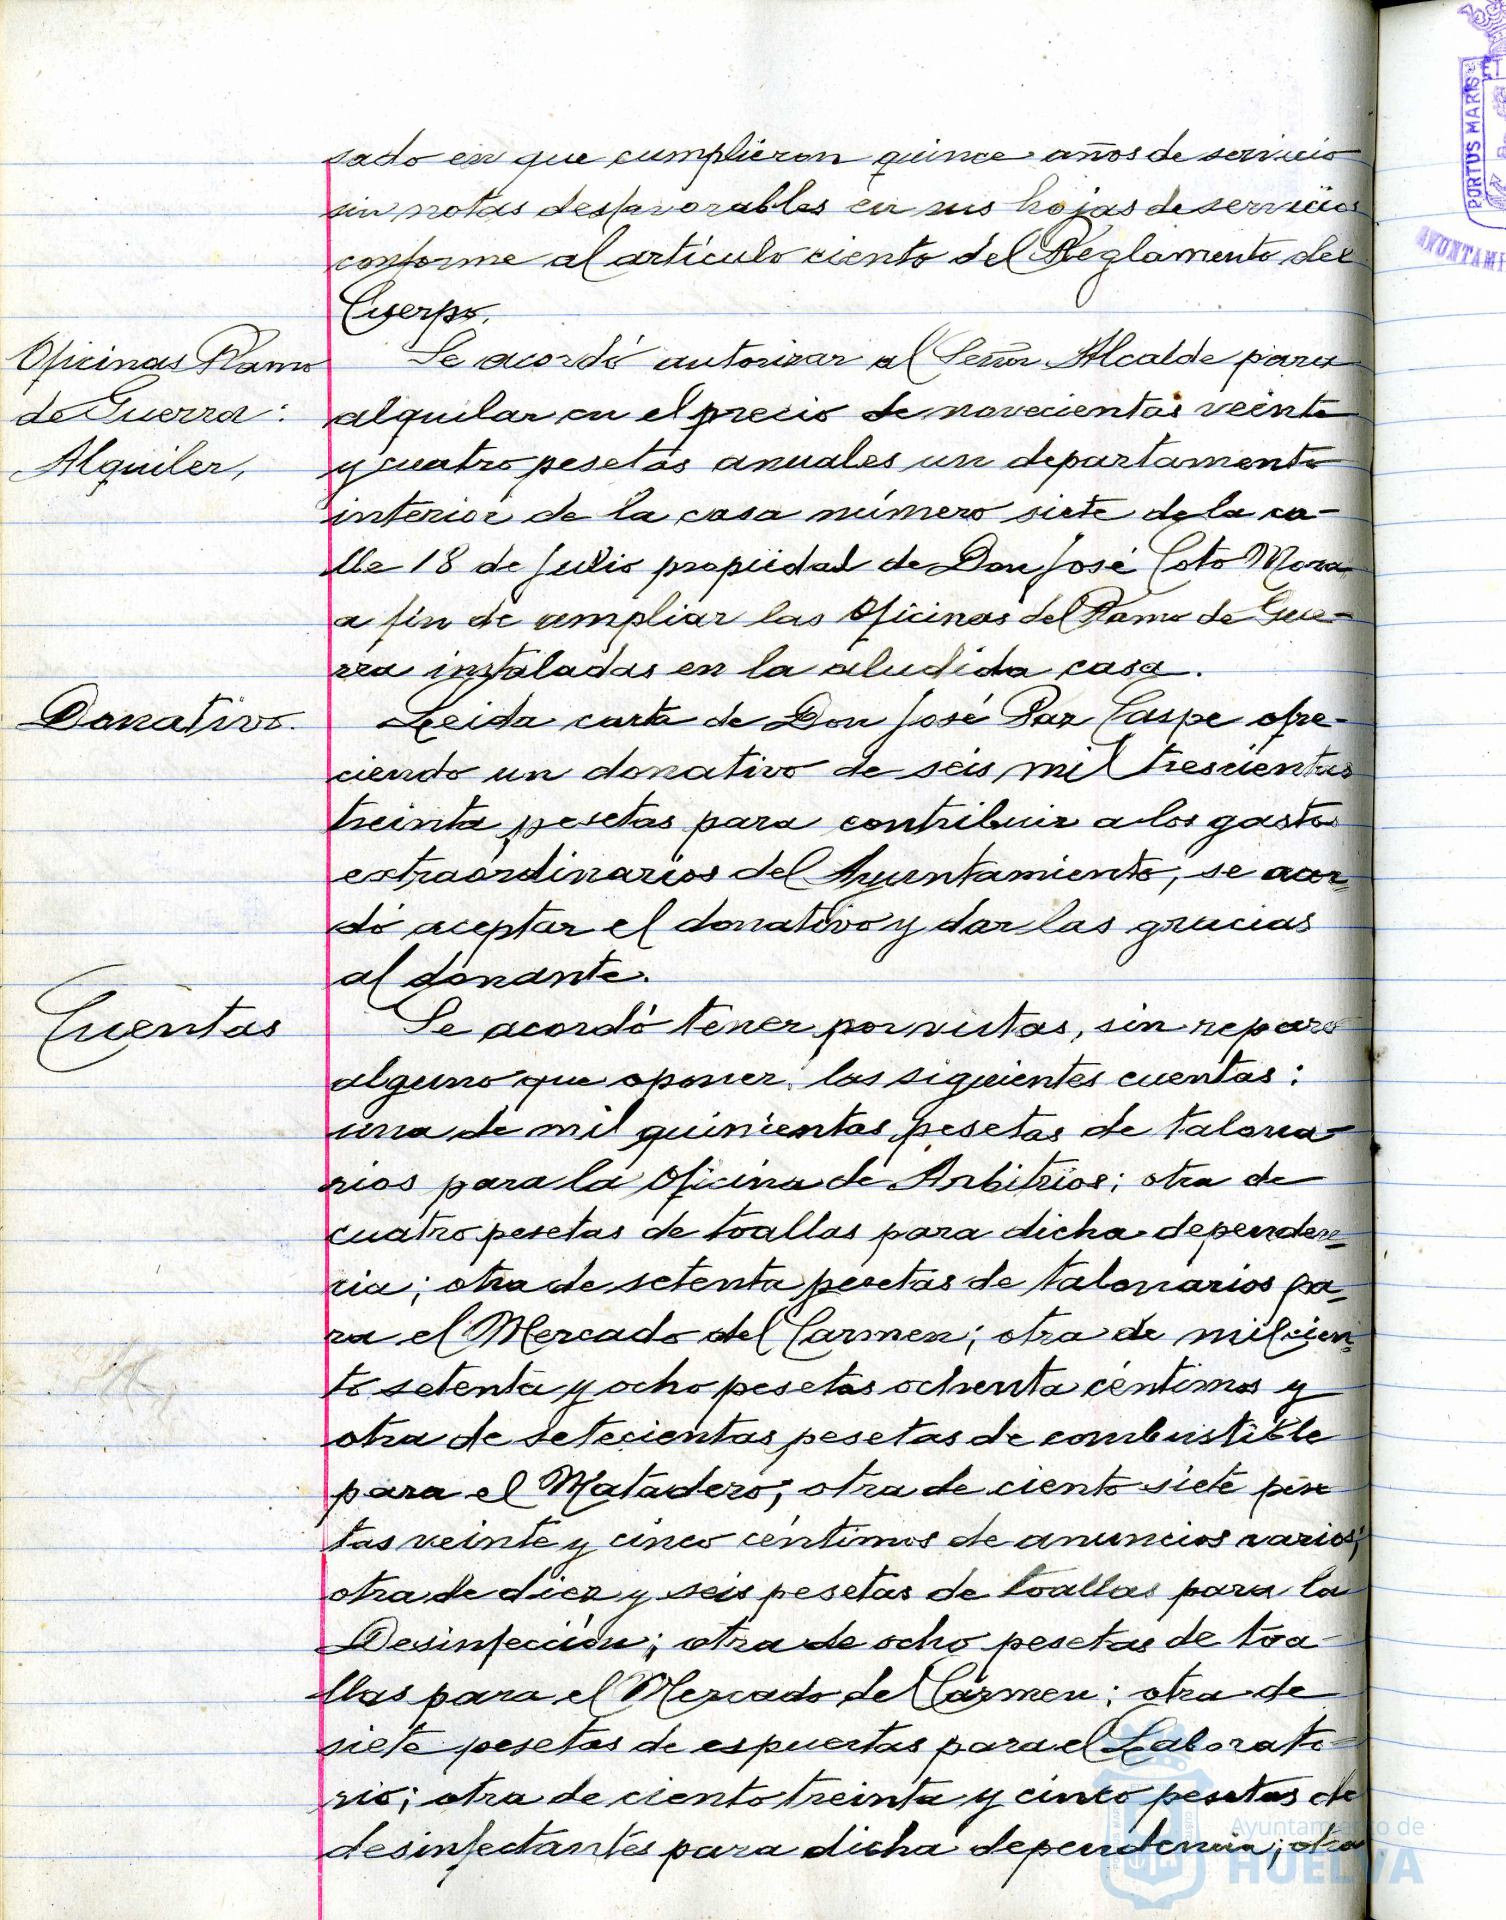 sado en que cumplieron quince años de servicio
sin notas desfavorables en sus hojas de servicios
conforme al artículo ciento del Reglamento del
Cuerpo.
Oficinas Ramo
de Guerra:
Alquiler,
Se acordó autorizar al Señor Alcalde para
alquilar en el precio de novecientas veinte
y cuatro pesetas anuales un departamento
interior de la casa número siete de la ca-
lle 18 de Julio propiedad de Don José Coto Mora
a fin de ampliar las Oficinas del Ramo de Gue-
rra instaladas en la aludida casa.
Donativo.
Leida carta de Don José Paz Caspe ofre-
ciendo un donativo de seis mil trescientas
treinta pesetas para contribuir a los gastos
extraordinarios del Ayuntamiento, se acor-
dó aceptar el donativo y dar las gracias
al donante.
Cuentas
Se acordó tener por vistas, sin reparo
alguno que oponer, las siguientes cuentas:
una de mil quinientas pesetas de talona-
rios para la Oficina de Arbitrios; otra de
cuatro pesetas de toallas para dicha dependen=
cia; otra de setenta pesetas de talonarios pa=
ra el Mercado del Carmen; otra de mil cien=
to setenta y ocho pesetas ochenta céntimos y
otra de setecientas pesetas de combustible
para el Matadero; otra de ciento siete pese
tas veinte y cinco céntimos de anuncios varios;
otra de diez y seis pesetas de toallas para la
Desinfección; otra de ocho pesetas de toa-
llas para el Mercado del Carmen; otra de
siete pesetas de espuertas para el Laborato-
rio; otra de ciento treinta y cinco pesetas de
desinfectantes para dicha dependencia; otra
PORTUS MARIS
AYUNTAMI
Ayuntamiento de
HUELVA